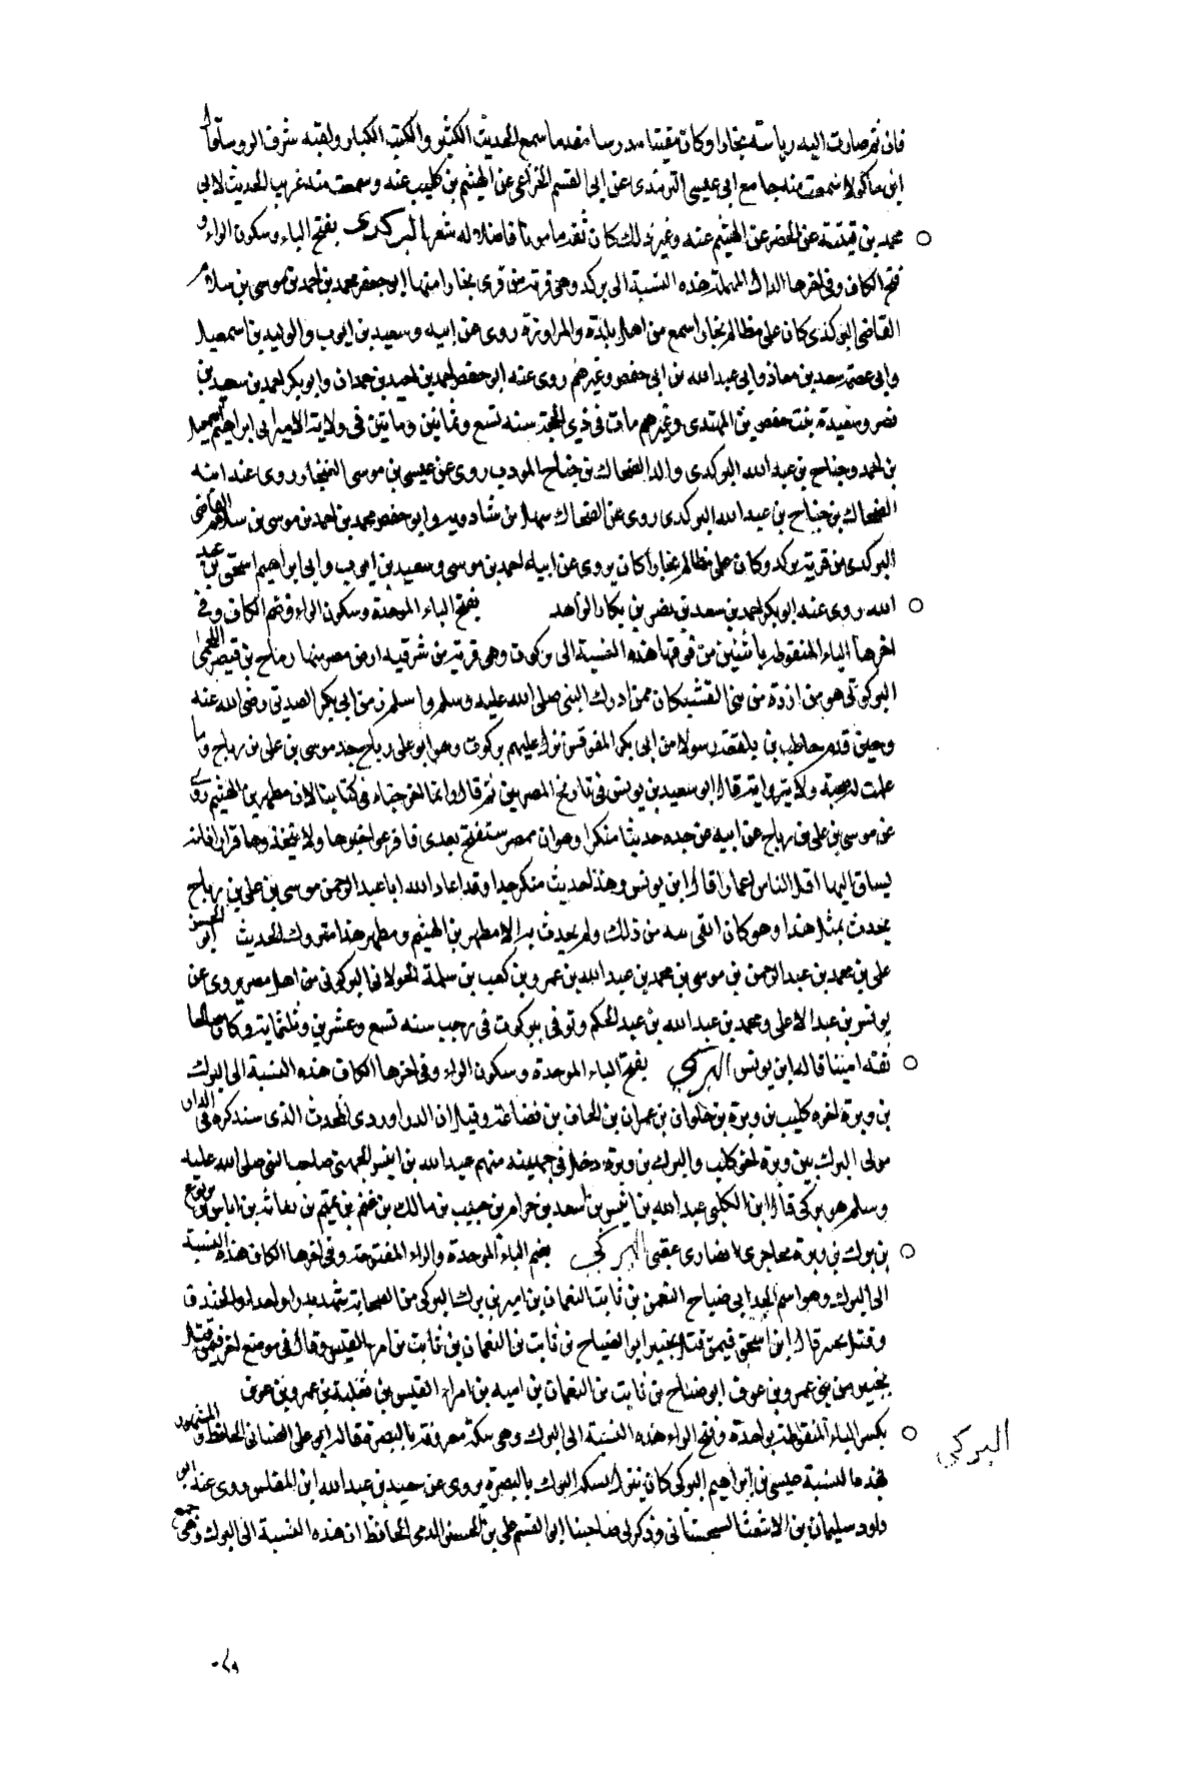 فانى ثم صارت اليه رياسة بخارا وكان مفتيا مدرسا مقدما سمع الحديث الكثير والكتب الكبار ولقبه شرف الروسا قال
ابن ماكولا سمعت منه جامع ابى عيسى الترمذى عن ابى القسم الخزاعى عن الهيثم بن كليب عنه وسمعت منه غريب الحديث لابى
محمد بن قتيبة عن الهيثم عنه وغير ذلك كان ثقة مامونا فاضلا له شعر البركدى بفتح الباء وسكون الراء و
فتح الكاف وفى اخرها الدال المهملة هذه النسبة الى بركد وهى قرية من قرى بخارا منها ابو جعفر محمد بن احمد بن موسى بن سلام
القاضى البركدى كان على مظالم بخارا سمع من اهل بلده والمراوزة روى عن ابيه وسعيد بن ايوب والوليد بن اسمعيل
وابى عصمة سعد بن معاذ وابى عبد الله بن ابى حفص وغيرهم روى عنه ابو حفص احمد بن احيد بن حمدان وابو بكر احمد بن سعد بن
نصر وسعيدة بنت حفص بن المهتدى وغيرهم مات فى ذى الحجة سنه تسع وثمانين ومايتين فى ولاية الامير ابى ابراهيم اسمعيل
بن احمد وجناح بن عبد الله البركدى والد الضحاك بن جناح المودب روى عن عيسى بن موسى روى عنه ابنه
الضحاك بن جناح بن عبد الله البركدى روى عن الضحاك سهل بن شادويه وابو حفص محمد بن احمد بن موسى بن سلام القاضى
البركدى من قرية بركد وكان على مظالم بخارا كان يروى عن ابيه احمد بن موسى وسعيد بن ايوب وابى ابراهيم اسحق بن عبد
الله روى عنه ابو بكر احمد بن سعد بن نصر بن بكار الزاهد بفتح الباء الموحدة وسكون الراء وضم الكاف وفى
اخرها التاء المنقوطة باثنين من فوقها هذه النسبة الى بركوت وهى قرية من شرقيه ارض مصر منها رباح بن قصير اللخمى
البركوتى هو من ازدة من بنى القشيب كان ممن ادرك النبى صلى الله عليه وسلم واسلم زمن ابى بكر الصديق رضى الله عنه
وحين قدم حاطب بن بلتعة رسولا من ابى بكر الى المقوقس نزل عليهم بركوت وهو ابو على رباح جد موسى بن على بن رباح وما
علمت له صحبة ولا رواية قال ابو سعيد بن يونس فى تاريخ المصريين ثم قال وانما اخرجناه فى كتابنا لان مطهر بن الهيثم روى
عن موسى بن على بن رباح عن ابيه عن جده حديثا منكرا وهو ان مصر ستفتح بعدى ولا تتخذوها قرارا فانه
يساق اليها اقل الناس اعمارا قال ابن يونس وهذا حديث منكر جدا وقد اعاذ الله ابا عبد الرحمن موسى بن على بن رباح
يحدث بمثل هذا وهو كان اتقى لله من ذلك ولم يحدث به الا مطهر بن الهيثم ومطهر هذا متروك الحديث ابو الحسن
على بن محمد بن عبد الرحمن بن موسى بن محمد بن عبد الله بن عمرو بن كعب بن سلمة الخولانى البركوتى من اهل مصر يروى عن
يونس بن عبد الاعلى ومحمد بن عبد الله بن عبد الحكم وتوفى ببركوت فى رجب سنه تسع وعشرين وثلثماية وكان صالحا
ثقه امينا قاله ابن يونس البركى بفتح الباء الموحدة وسكون الراء وفى اخرها الكاف هذه النسبة الى البرك
بن وبرة اخو كليب بن وبرة بن حلوان بن عمران بن الحاف بن قضاعة وقيل ان الدراوردى المحدث الذى سنذكره فى الدال
مولى البرك بن وبرة اخى كلب والبرك بن وبرة دخل فى جهينه منهم عبد الله بن انيس الجهنى صاحب النبى صلى الله عليه
وسلم هو بركى قال ابن الكلبى عبد الله بن انيس بن اسعد بن حرام بن حبيب بن مالك بن غنم بن اياس بن يربوع
بن برك بن وبرة مهاجرى انصارى عقبى البركى بضم الباء الموحدة والراء المفتوحة وفى اخرها الكاف هذه النسبة
الى البرك وهو اسم لجد ابى ضياح النعمن بن ثابت النعمان بن اميه بن برك البركى من الصحابة شهد بدرا واحدا والخندق
وقتل بخيبر قال ابن اسحق فيمن قتل بخيبر ابو الضياح بن ثابت بن النعمان بن ثابت بن امرا القيس وقال فى موضع اخر فيمن قتل
بخيبر من بنى عمرو بن عوف ابو ضياح بن ثابت بن النعمان بن اميه بن امراء القيس بن ثعلبة بن عمرو بن عوف
البركى
بكسر الباء المنقوطة بواحدة وفتح الراء هذه النسبة الى البرك وهى سكة معروفة بالبصرة قاله ابو على الغسانى الحافظ والمشهور
بهذه النسبة عيسى بن ابراهيم البركى كان ينزل سكة البرك بالبصرة يروى عن روى عنه ابو
داود سليمان بن الاشعث السجستانى وذكر لى صاحبنا ابو القسم على بن الحسن الحافظ ان هذه النسبة الى البرك وهى جمع